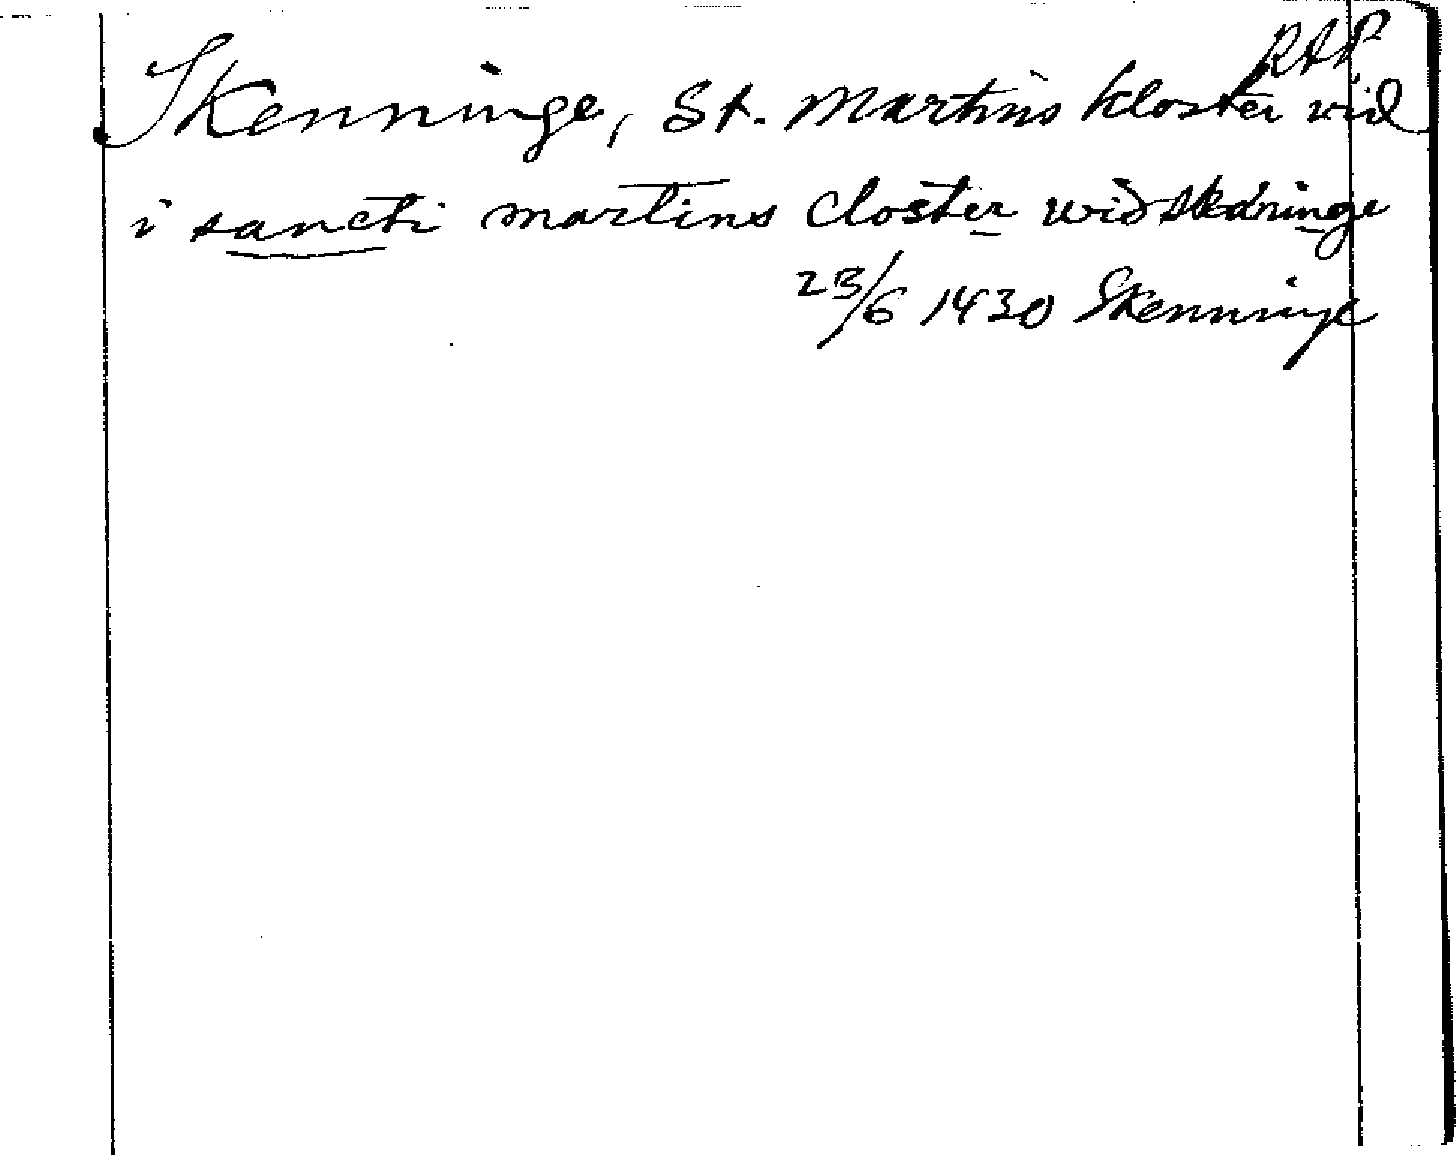 RAP
Skenninge, St. Martins kloster vid
i sancti martins closter wid skäninge
23/6 1430 Skenninge